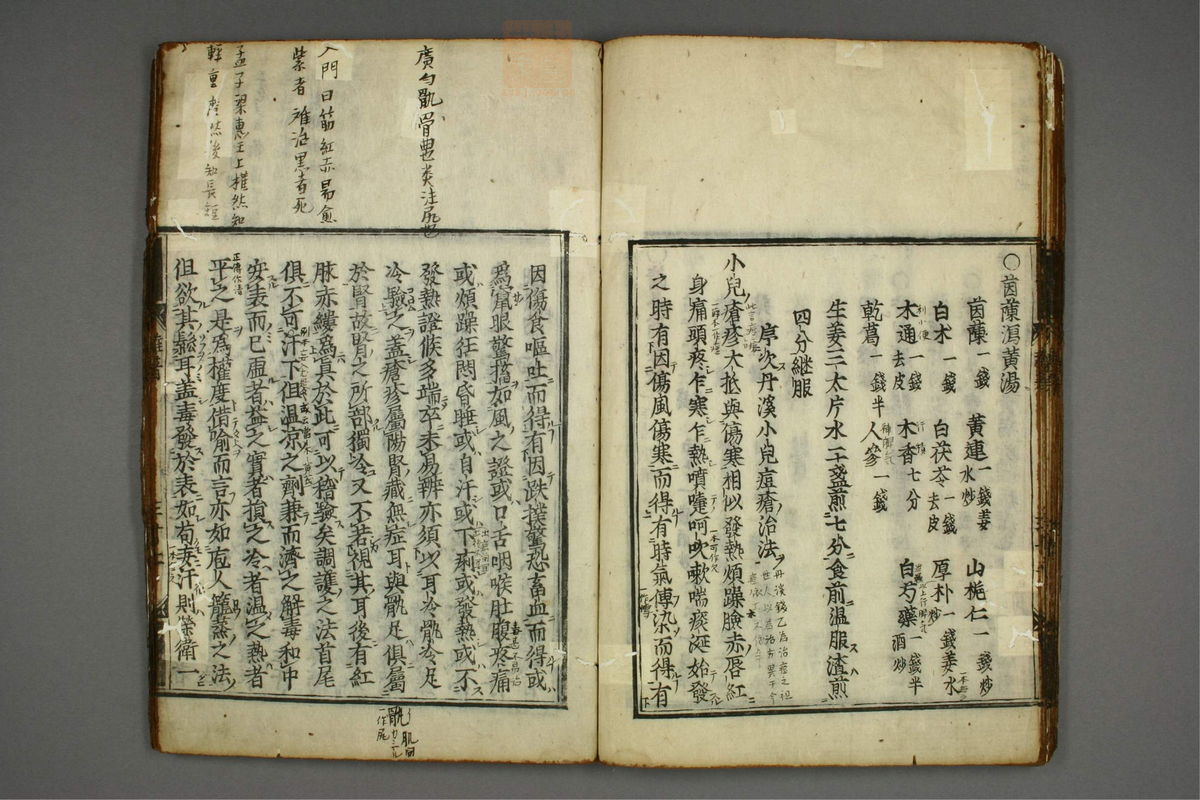 〇茵蔯瀉黄湯
茵蔯一錢 黄連一錢姜水炒 山梔仁一錢炒
白朮一錢 白茯苓一錢去皮 厚朴一錢姜水炒
木通一錢去皮 木香七分 白芍藥一錢半酒炒
乾葛一錢半 人參一錢
生姜三大片水二盞煎七分食前温服渣煎
四分継服
序次丹溪小兒痘瘡治法
小兒瘡疹大抵與傷寒相似發熱煩躁臉赤唇紅
身痛頭疼乍寒乍熱噴嚏呵吹嗽喘痰涎始發
之時有因傷風傷寒而得有時氣傳染而得有
因傷食嘔吐而得有因跌撲驚恐畜血而得或
為竄眼驚搐如風之證或口舌咽喉肚腹疼痛
或煩躁狂悶昏睡或自汗或下痢或發熱或不
發熱證候多端卒未易辨亦須以耳冷骩冷足
冷驗之盖瘡疹屬陽腎藏無症耳與骩足俱屬
於腎故腎之所部獨冷又不若視其耳後有紅
脉赤縷為真於此可以稽驗矣調護之法首尾
俱不可汗下但温凉之劑兼而濟之解毒和中
安表而已虚者益之實者損之冷者温之熱者
平之是為權度借喻而言亦如庖人籠蒸之法
但欲其鬆耳盖毒發於表如苟妄汗則榮衛一
廣匀骩骨豊类注尻也
入門曰筋紅赤易愈
紫者难治黒者死
孟子梁惠王上權然知
輕重度然後知長短
正傳作清
骩
一作尻